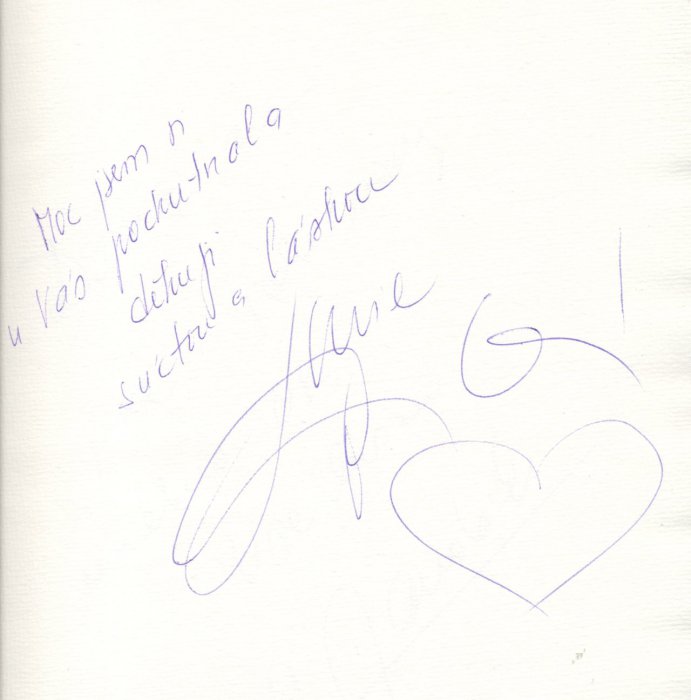 Moc jsem si
u Vás pochutnala
děkuji
s úctou a láskou